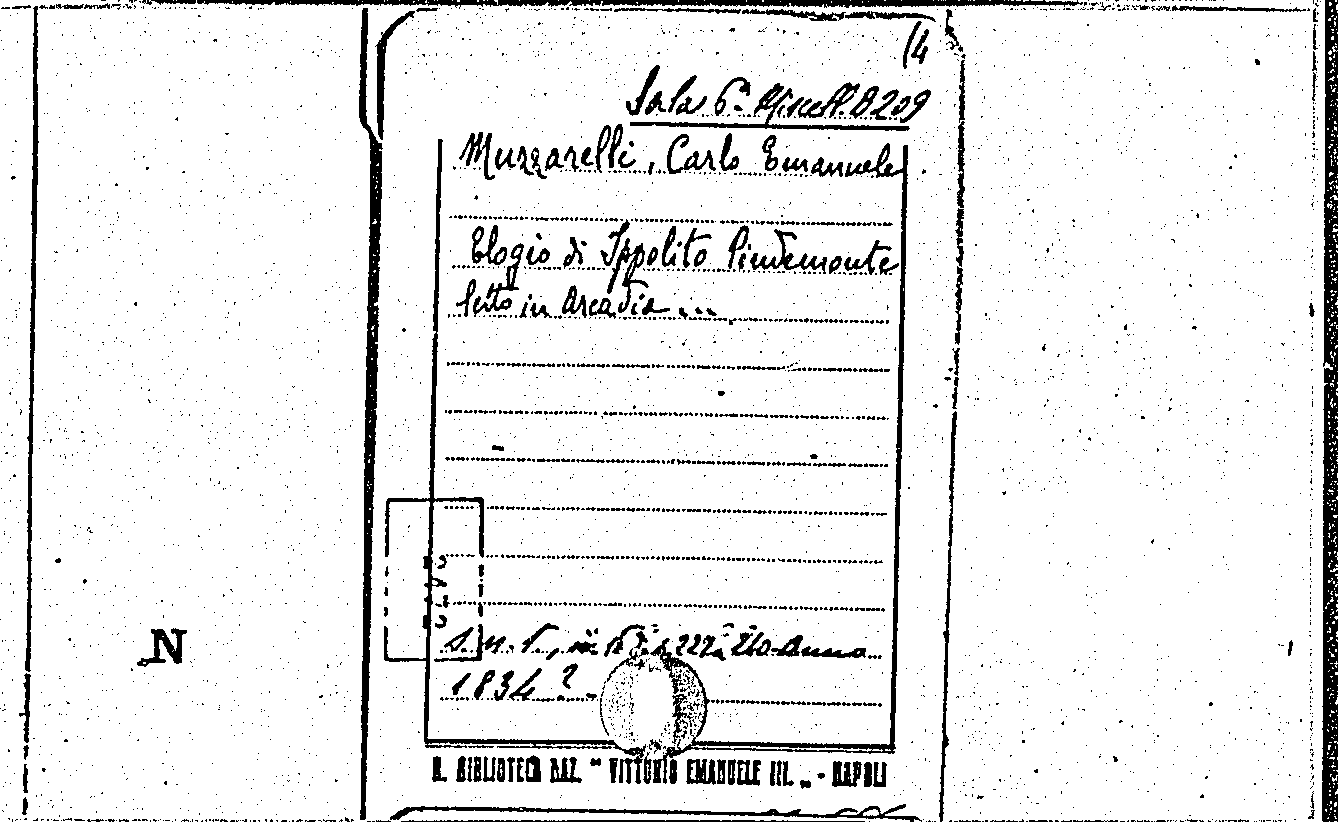 14
Sala 6ª Miscell. B 209
Muzzarelli, Carlo Emanuele
Elogio di Ippolito Pindemonte
letto in Arcadia ...
s. n. t., in
anno
1834 ?
N
R. BIBLIOTECA NAZ. "VITTORIO EMANUELE III. „ - NAPOLI